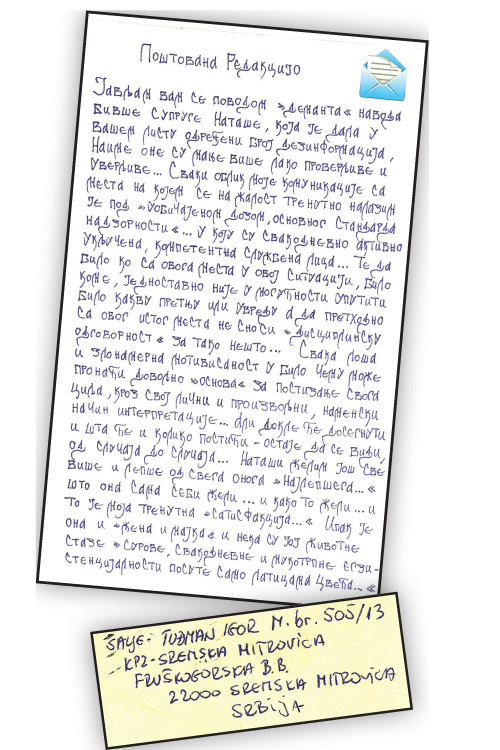 Поштована Редакцијо
Јављам вам се поводом »деманта« навода
бивше супруге Наташе, која је дала у
вашем листу одређени број дезинформација,
Наиме оне су мање више лако проверљиве и
уверљиве... Сваки облик моје комуникације са
места на којем се на жалост тренутно налазим
је под »уобичајеном дозом, основног стандарда
надзорности«... у коју су свакодневно активно
укључена, компетентна службена лица... Те да
било ко са овога места у овој ситуацији, било
коме, једноставно није у могућности упутити
било какву претњу или увреду а да претходно
са овог истог места не сноси »дисциплинску
одговорност« за тако нешто... Свака лоша
и злонамерна мотивисаност у било чему може
пронаћи довољно »основа« за постизање свога
циља, кроз свој лични и произвољни, наменски
начин интерпретације... Али докле ће досегнути
и шта ће и колико постићи - остаје да се види,
од случаја до случаја... Наташи желим још све
више и лепше од свега онога »најлепшега...«
што она сама себи жели... и како то жели... и
то је моја тренутна »сатисфакција...« Ипак је
она и »жена и мајка« и нека су јој животне
стазе »сурове, свакодневне и мукотрпне егзи-
стенцијалности посуте само латицама цвећа...«
ŠALJE: TUĐMAN IGOR M.br. 505/13
-KPZ-SREMSKA MITROVICA
FRUŠKOGORSKA B.B.
22000 SREMSKA MITROVICA
SRBIJA